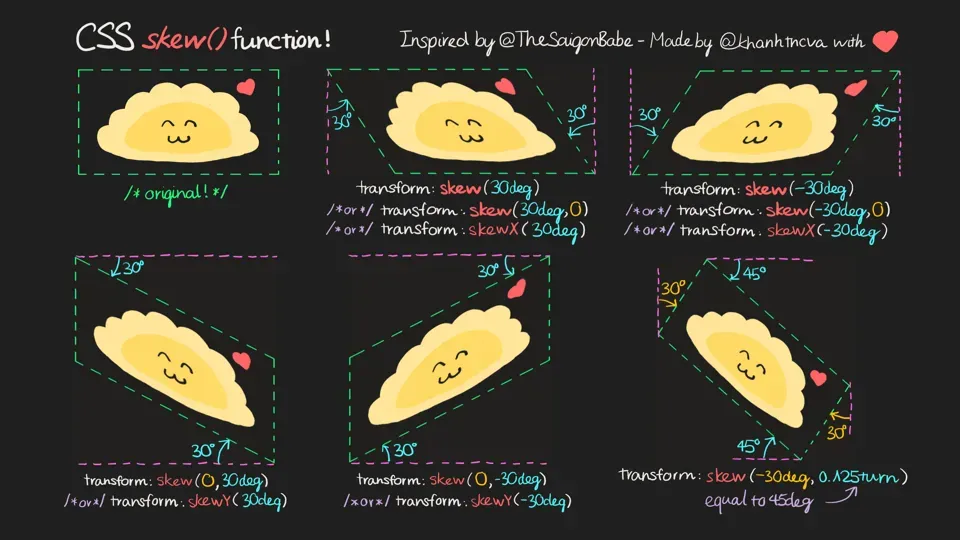 CSS skew() function!
Inspired by @TheSaigonBabe - Made by @khanhtncva with
30°
30°
30°
30°
/* original! */
transform: skew(30deg)
/*or*/ transform: skew(30deg,0)
/*or*/ transform: skewX(30deg)
transform: skew(-30deg)
/*or*/ transform: skew(-30deg,0)
/*or*/ transform: skewX(-30deg)
30°
30°
45°
30°
30°
30°
45°
30°
transform: skew(0,30deg)
/*or*/ transform: skewY(30deg)
transform: skew(0,-30deg)
/*or*/ transform: skewY(-30deg)
transform: skew(-30deg, 0.125turn)
equal to 45deg